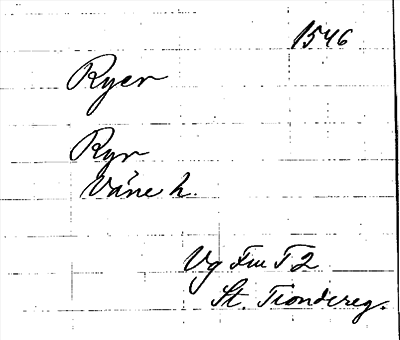 1546
Ryer
Ryr
Våne h.
Vg Fru T 2
St. Tiondereg.